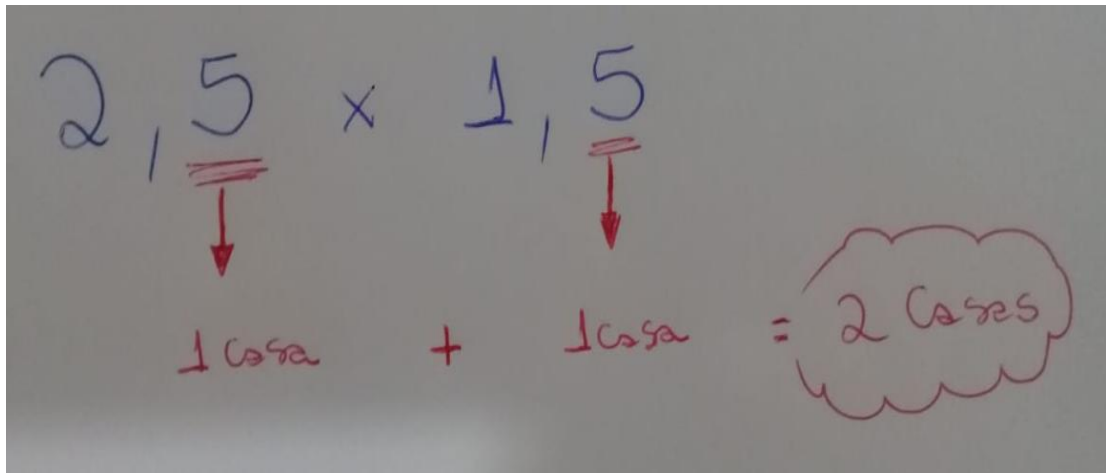 2,5 x 1,5
1 casa + 1 casa = 2 Casas